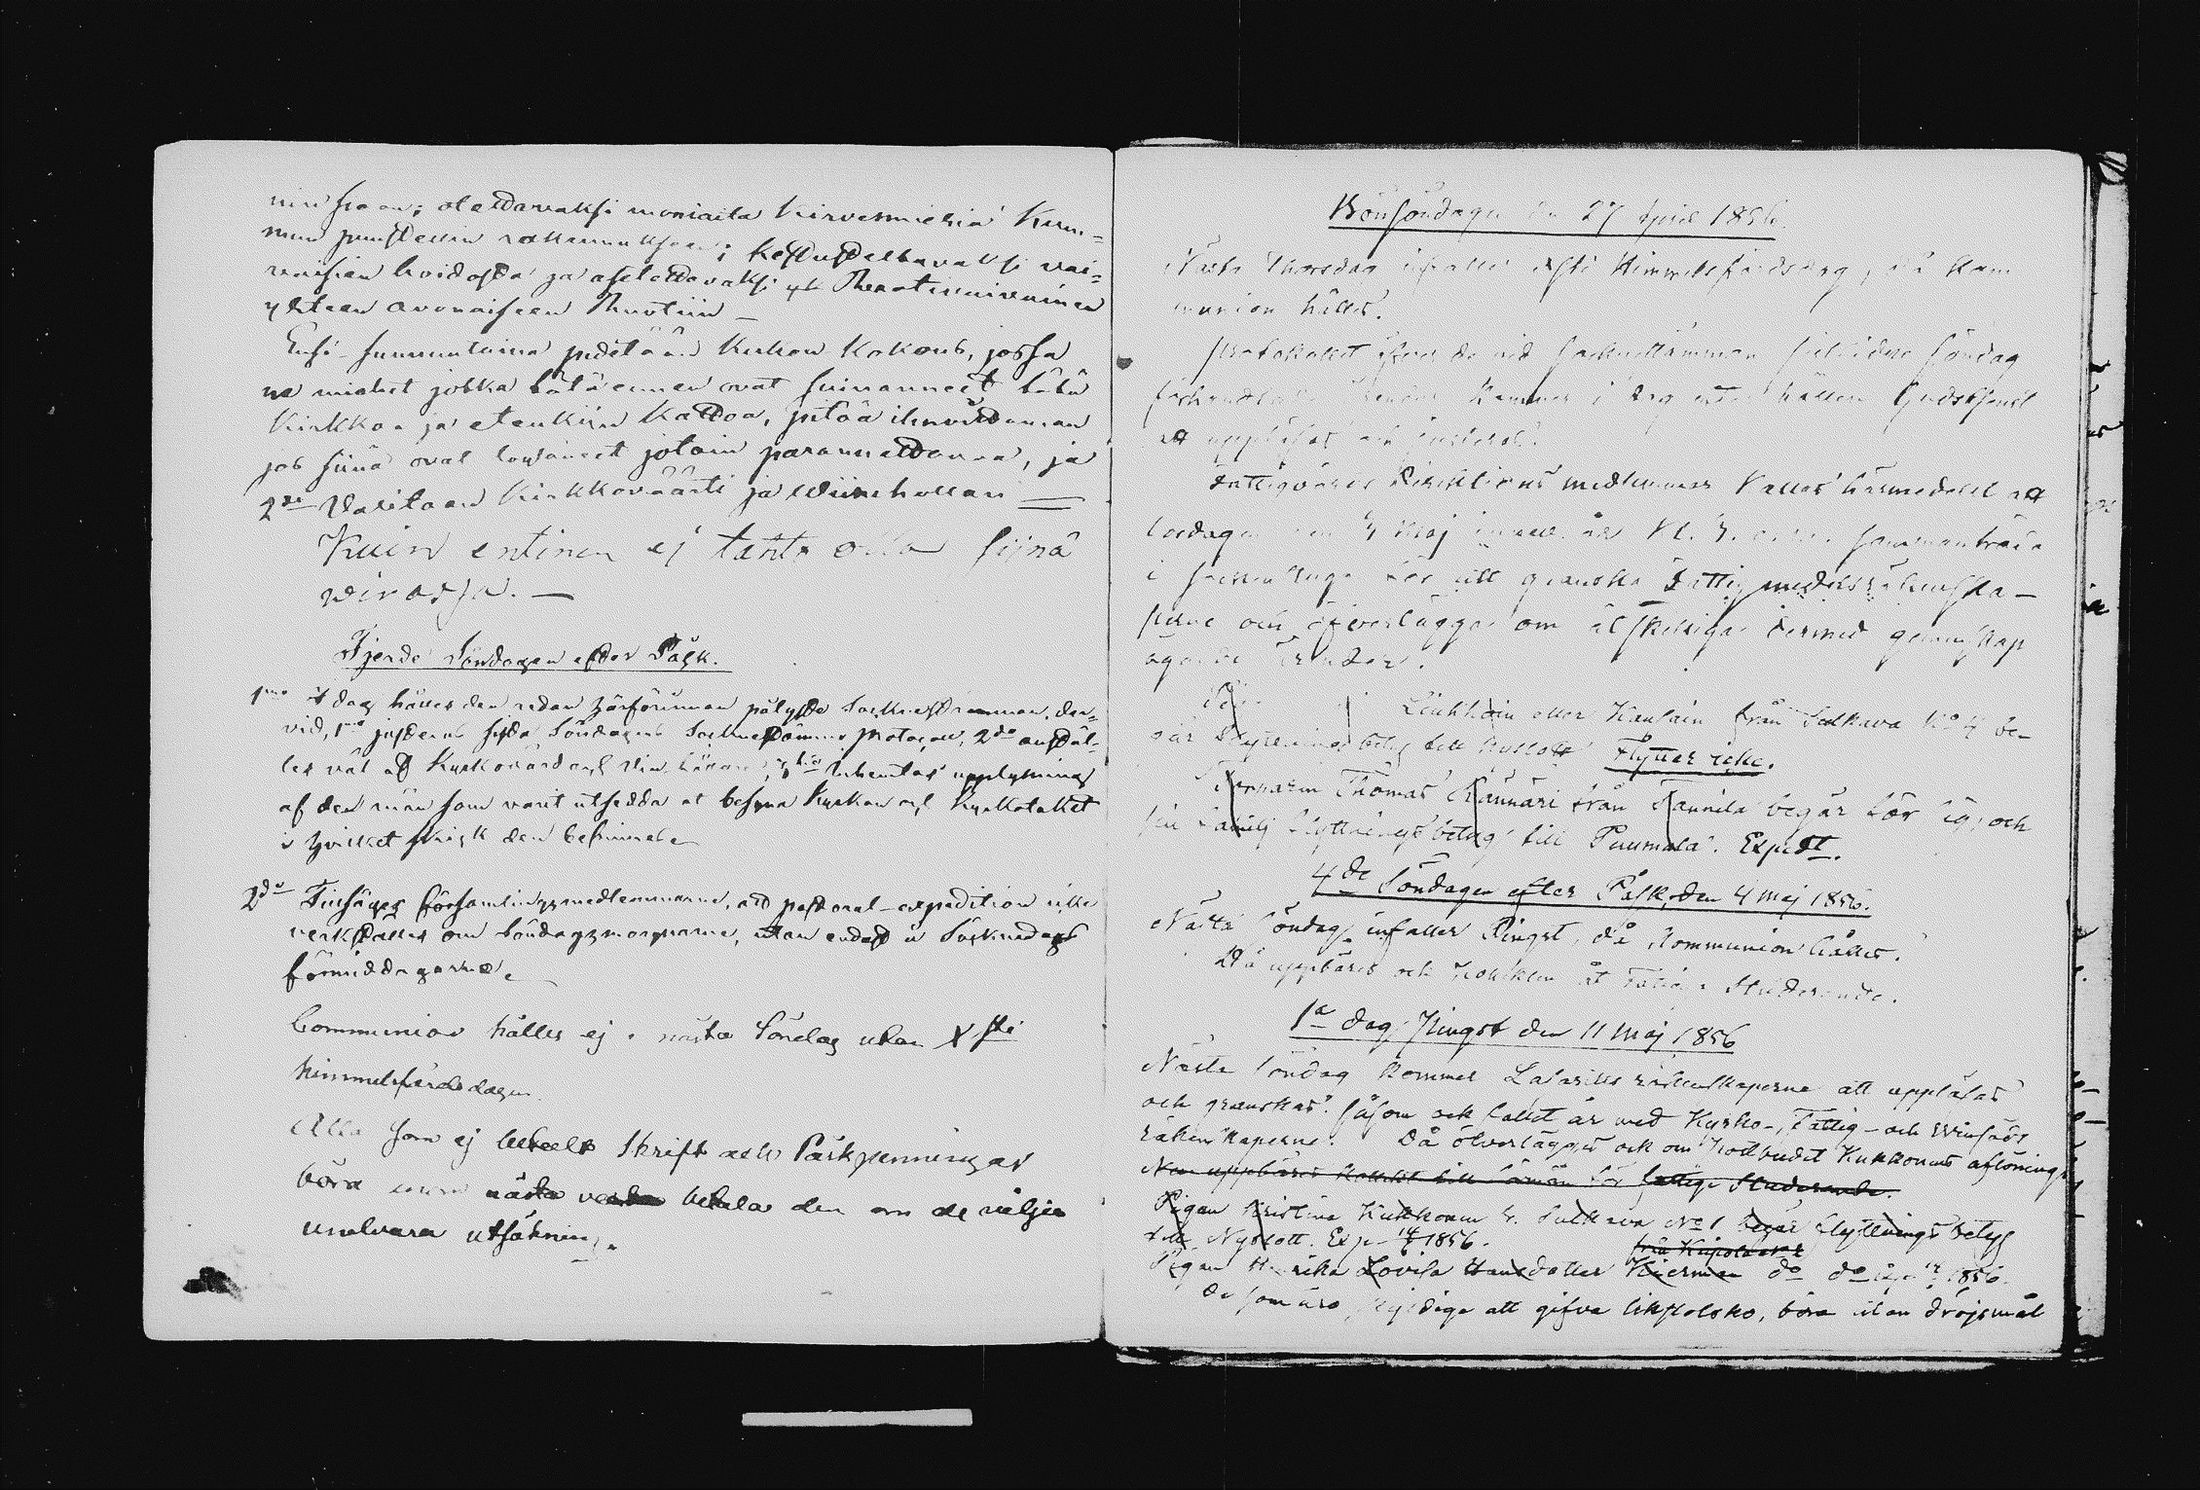 oletettavaksi moniaita Kirvesmiehiä Kun=
nun puustellin rakennukseen; Keskusteltavaksi vai=
vaisien hoidosta ja aseletettavaksi
yhteen avonaiseen Ruotiin —
Ensi sunnuntaina pidetään Kirkon Kokous, jossa
ne miehet jotka tätä ennen ovat luvanneet tätä
Kirkkoa ja etenkin Kattoa, pitää ilmoittaman
jos siinä ovat löytäneet jotain parannettavaa, ja
2do Valitaan Kirkkoväärti ja Wiinihollari
Kuin entinen ej tahto olla siinä
virassa. —
Fjerde Söndagen efter Påsk.
1mo I dag hålles den redan härförinnan pålyste Sockenstämman, der=
vid, 1mo justeras sista Söndagens Sockenstämmo protocoll, 2do anstäl=
les val af Kyrkovärd och Vin, 3tio inhemtas upplysning
af den män som varit utsedda at bese Kyrkan och Kyrkotaket
i hvilket skick den befinnes
2do Tillsäges församlingsmedlemmarne, att pastoral-expedition icke
verkställes om Söndagsmorgnarne, utan endast å Söcknedags
förmiddagarne
Communion hålles ej nästa Söndag utan X sti
himmelsfärdsdagen.
Alla som ej betalt Skrift och Påskpenningar
böra inom nästa vecka betala den om de vilja
undvara utsökning.
Bönsöndagen den 27 April 1856.
Nästa Thorsdag infaller Christi Himmelsfärdsdag, då Kom
munion hålles.
Protokollet öfver de vid Sockenstämman sistlidne Söndag
förhandlade ärender kommer i dag efter hållen Gudstjenst
att uppläsas och justeras.
Fattigvårds Direktions medlemmar kallas härmedelst att
lördagen den Maj innev. år Kl. sammanträda
i Sockenstuga för att granska Fattigmedelsräkenska-
perne och öfverlägga om åtskilliga dermed gemenskap
ägande ärender.
Linkkoin eller Kaukoin från Sulkava No 4 be-
gär Flyttningsbetyg till Nyslott Flyttar icke.
Thomas Rännäri från Kaunila begär för sig och
sin familj Flyttningsbetyg till Puumala. Exped.
4de Söndagen efter Påsk, den 4 Maj 1856.
Nästa Söndag infaller Pingst, då Kommunion hålles.
Då uppbäres och kollekten åt Fattiga Studerande.
1a dag Pingst den 11 Maj 1856
Nästa Söndag kommer Lasaretts räkenskaperne att uppläsas
och granskas. Såsom ock fallet är med Kyrko-, Fattig- och
räkenskaperne. Då öfverlägges ock om Kukkonens aflöning
Nu uppbäres Kollekt till förmån för fattige Studerande.
Pigan Kristina Kukkonen fr. Sulkava No 1 begär Flyttnings betyg
till Nyslott. Exp. 1856.
Pigan Henrika Lovisa Hansdotter do do 1856.
De som äro skyldige att gifva likstolsko, böra utan dröjsmål